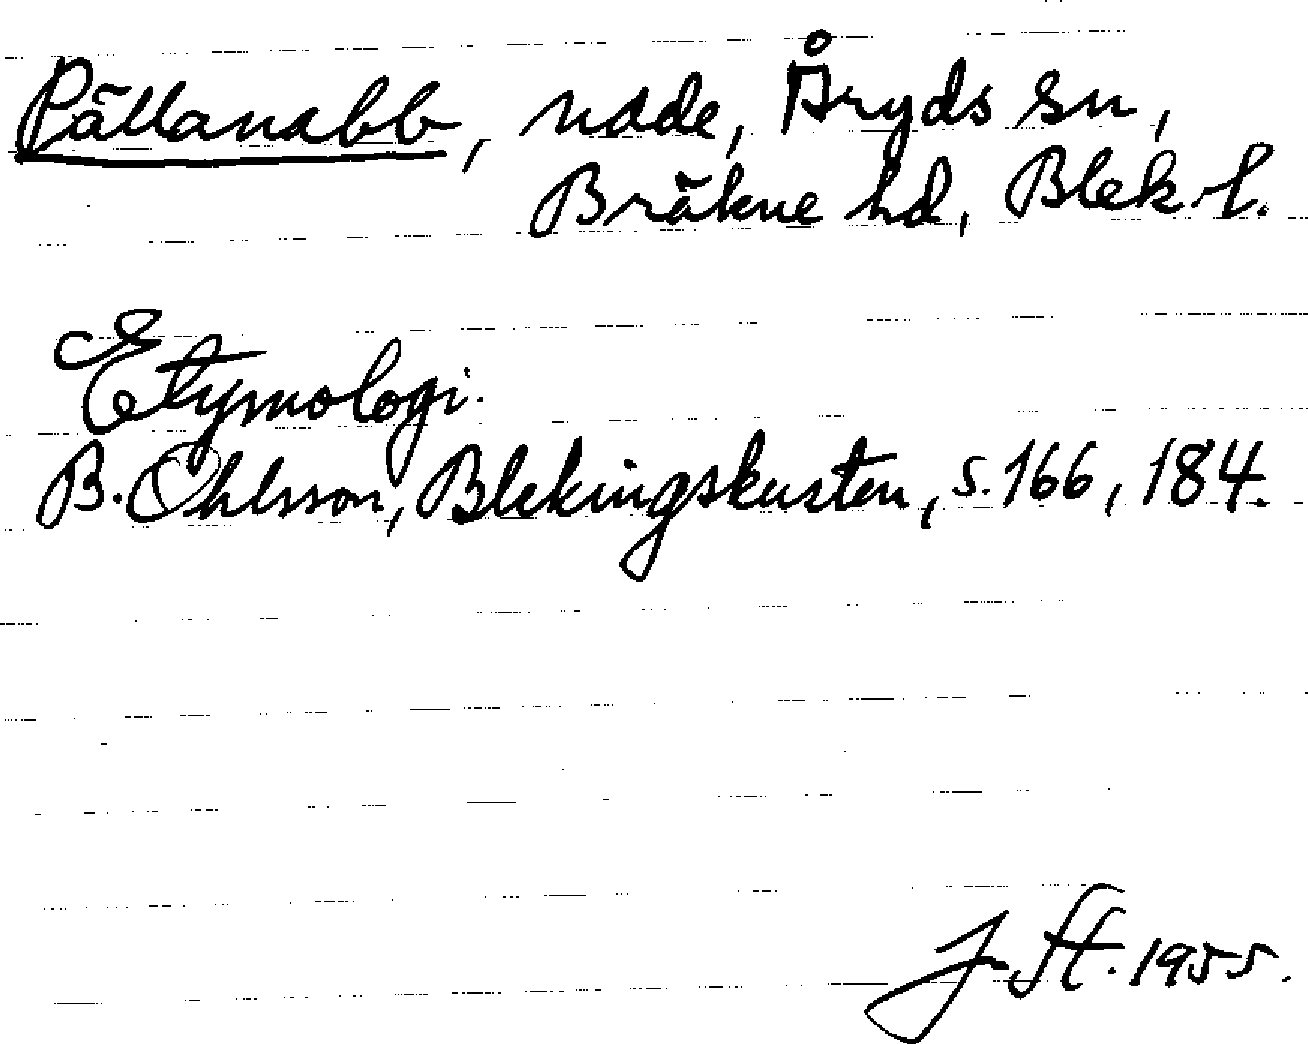 Pällanabb, udde, Åryds sn,
Bräkne hd, Blek. l.
Etymologi.
B. Ohlsson, Blekingskusten, s. 166, 184.
J. St. 1955.